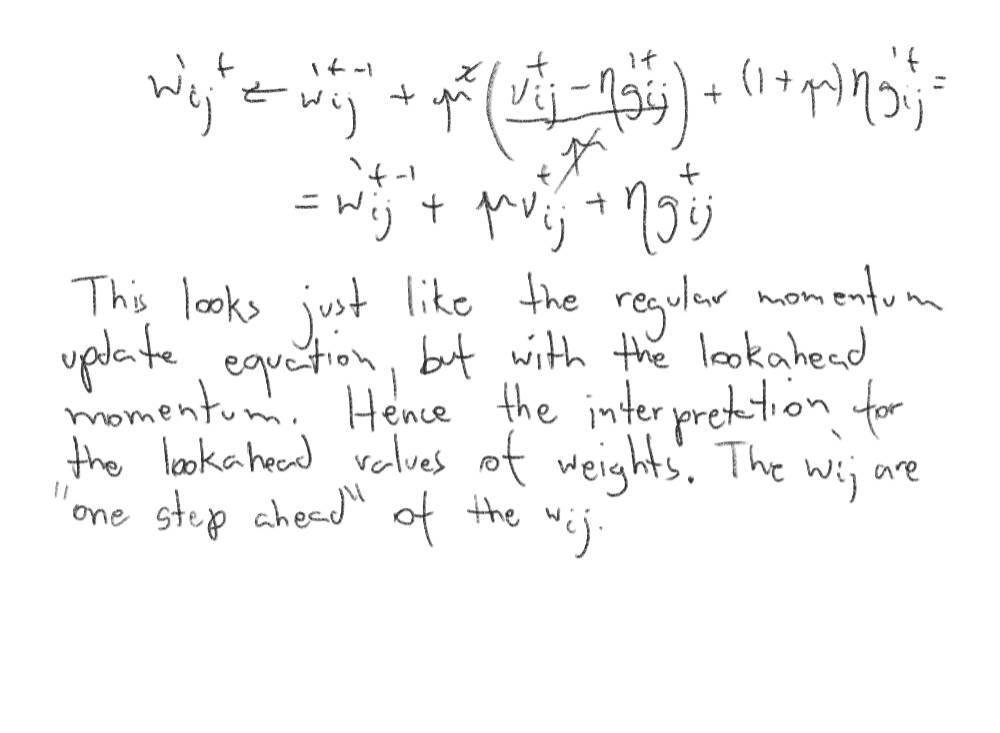 w'ij^t ← w'ij^t-1 + μ^2((vij^t - ηg'ij^t)/μ) + (1+μ)ηg'ij^t =
= w'ij^t-1 + μvij^t + ηgij^t
This looks just like the regular momentum
update equation, but with the lookahead
momentum. Hence the interpretation for
the lookahead values of weights. The w'ij are
"one step ahead" of the wij.